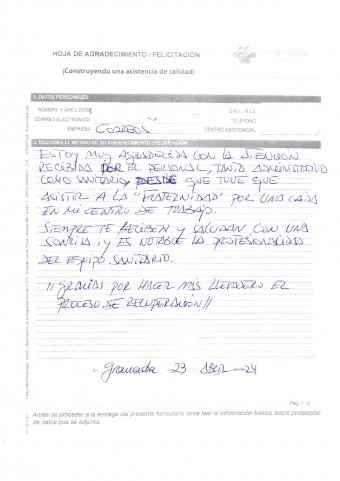 HOJA DE AGRADECIMIENTO / FELICITACIÓN
¡Construyendo una asistencia de calidad!
1. DATOS PERSONALES
NOMBRE Y APELLIDOS
D.N.I. / N.I.E.
CORREO ELECTRÓNICO
TELÉFONO
EMPRESA CORREOS
CENTRO ASISTENCIAL
2. DESCRIBA EL MOTIVO DE SU AGRADECIMIENTO / FELICITACIÓN
ESTOY MUY AGRADECIDA CON LA ATENCION
RECIBIDA POR EL PERSONAL, TANTO ADMINISTRATIVO
COMO SANITARIO, DESDE QUE TUVE QUE
ASISTIR A LA "FRATERNIDAD" POR UNA CAIDA
EN MI CENTRO DE TRABAJO.
SIEMPRE TE RECIBEN Y SALUDAN CON UNA
SONRISA, Y ES NOTABLE LA PROFESIONALIDAD
DEL EQUIPO SANITARIO.
¡¡GRACIAS POR HACER MAS LLEVADERO EL
PROCESO DE RECUPERACIÓN!!
Granada 23 ABRIL -24
Pág. 1 / 2
Antes de proceder a la entrega del presente formulario debe leer la información básica sobre protección
de datos que se adjunta.